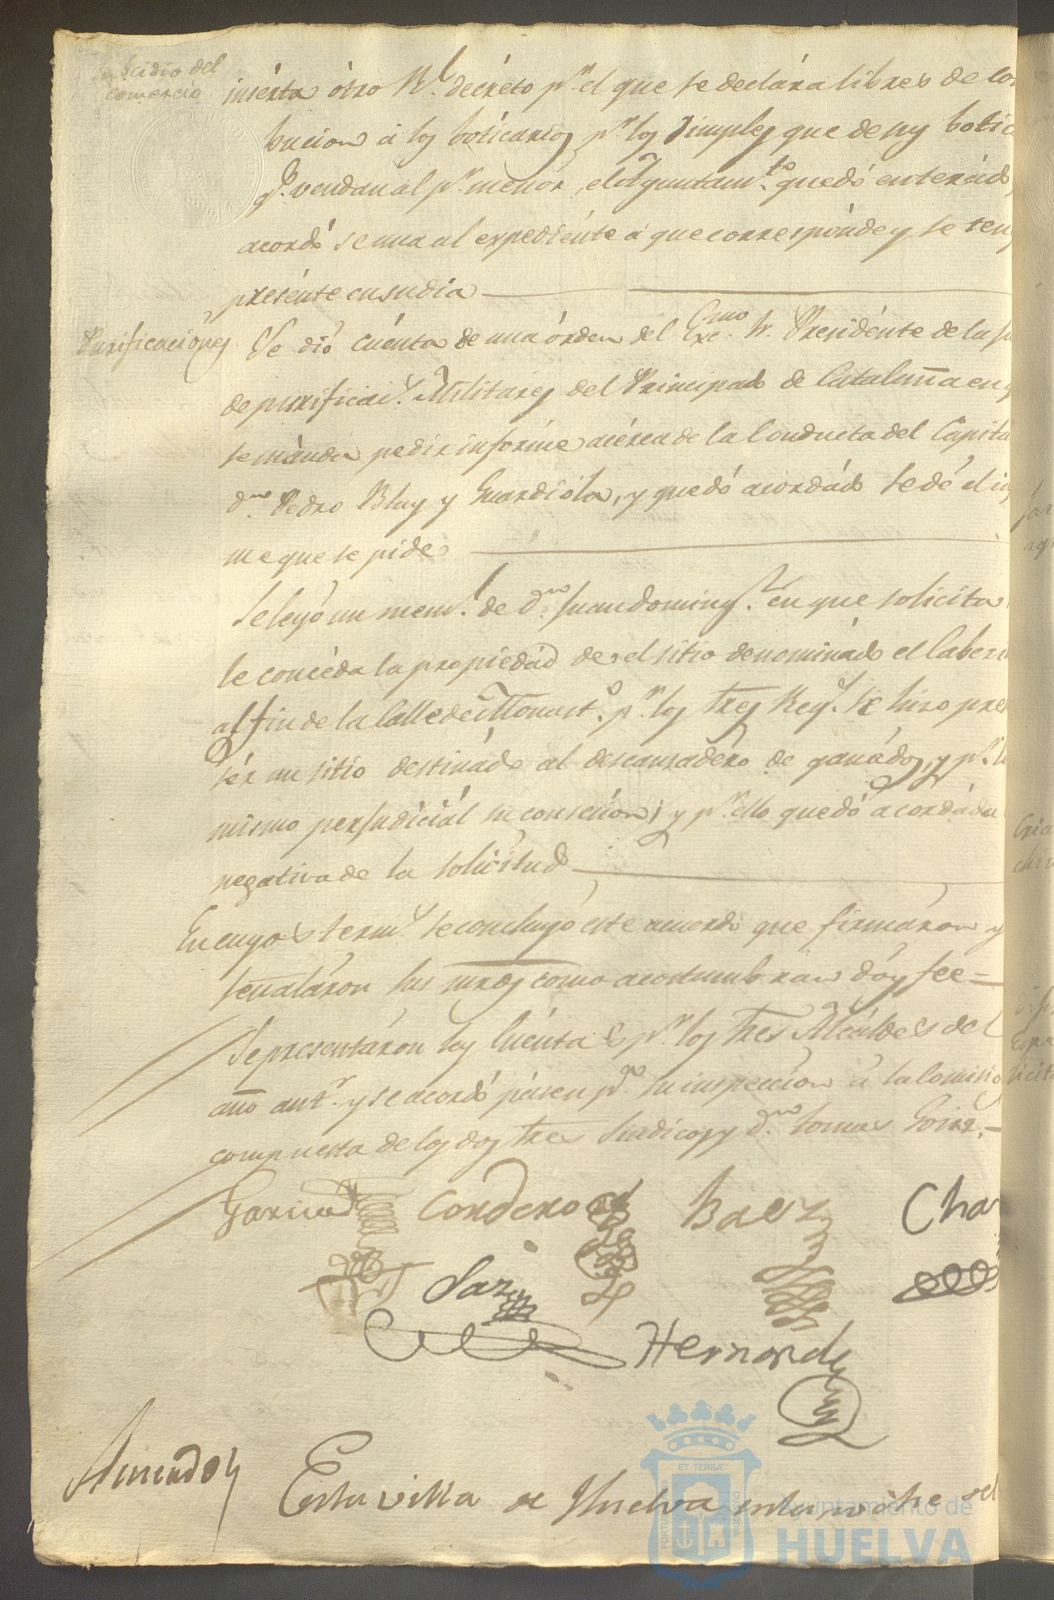 Subcidio del
comercio
inserta otro Rl. decreto pr. el que se declara libres de con
bucion à los boticarios pr. los simples que de sus botic
qe. vendan al pr. menor, el Ayuntamto. quedó enterado,
acordó se una al expediente à que corresponde y se ten
presente en su dia
Purificaciones
Se dió cuenta de una órden del Excmo. Sr. Presidente de la Ju
de purificacs. Militares del Principado de Cataluña en q
se manda pedir informe acérca de la Conducta del Capita
dn. Pedro Bluy y Guardiola, y quedó acordado se dé el in
me que se pide
Se leyó un meml. de dn. Juan Domingz. en que solicita
le concéda la propiedad de el sitio denominado el Laber
al fin de la Calle de Monast.o pr. los Sres Regs. se hiso pre
sér un sitio destinado al descansadero de ganados, y pr. lo
mismo perjudicial su consesion; y pr. ello quedó acordada
negativa de la solicitud
En cuyos terms. se concluyó este acuerdo que firmáron y
señaláron sus mrds como acostumbran doy fee =
Se presentáron las Cuentas pr. los Sres Alcáldes del
año antr. y se acordó pasen pa. su inspeccion à la Comisio
compuesta de los dos Sres Sindicos y dn. Tomas
Garcia Cordero Baez Cha
Saz
Hernandz
Amador
En la villa de Huelva en la noche del
ET TERRÆ
Ayuntamiento de
HUELVA